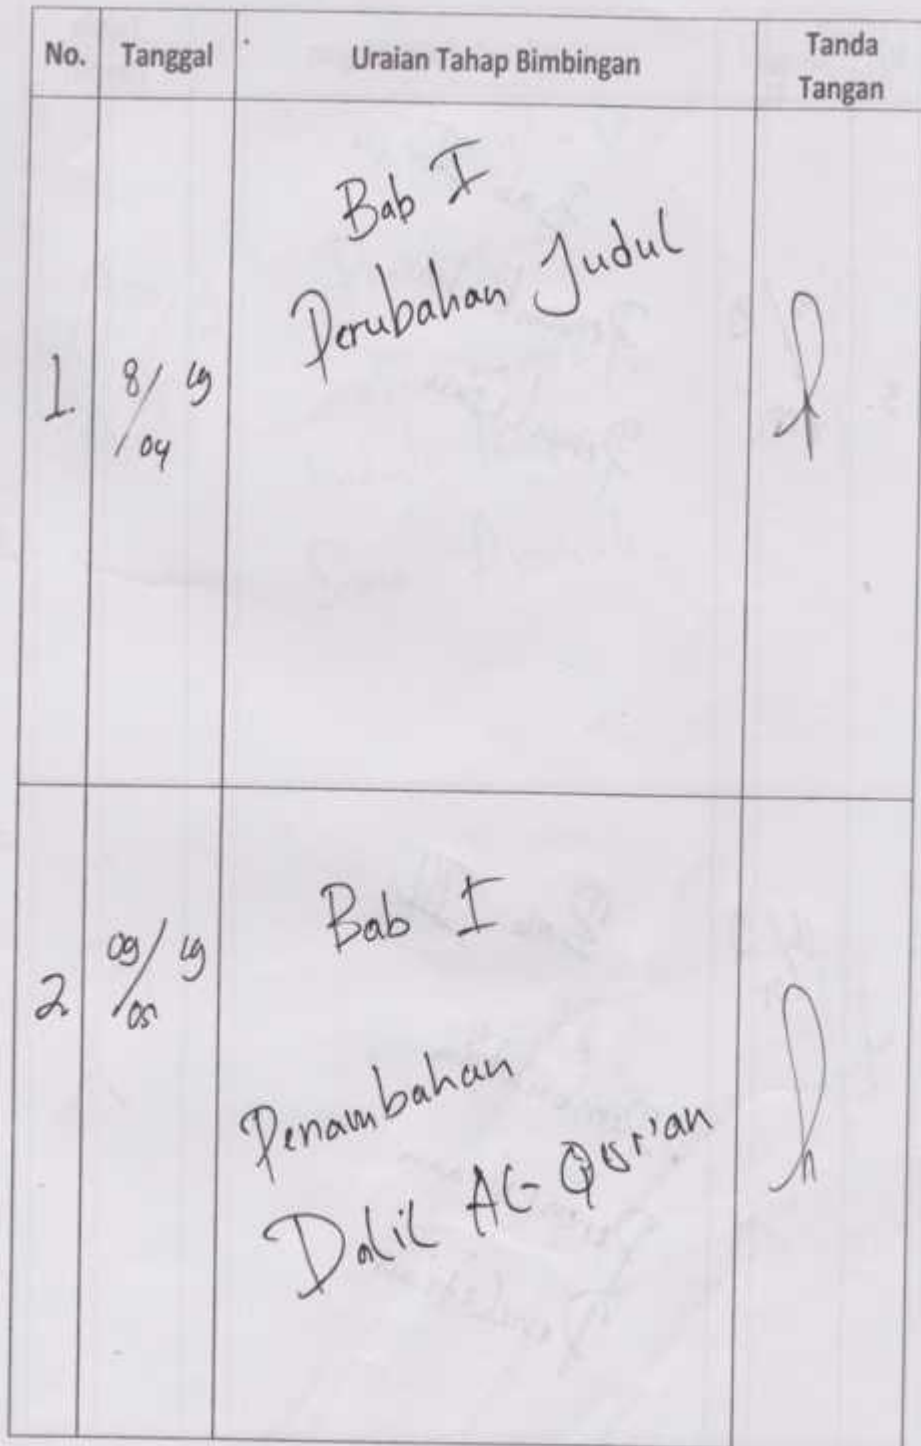 No. Tanggal Uraian Tahap Bimbingan Tanda
Tangan
Bab I
Perubahan Judul
1. 8/04 19
Bab I
2. 09/05 19
Penambahan
Dalil Al-Qur'an